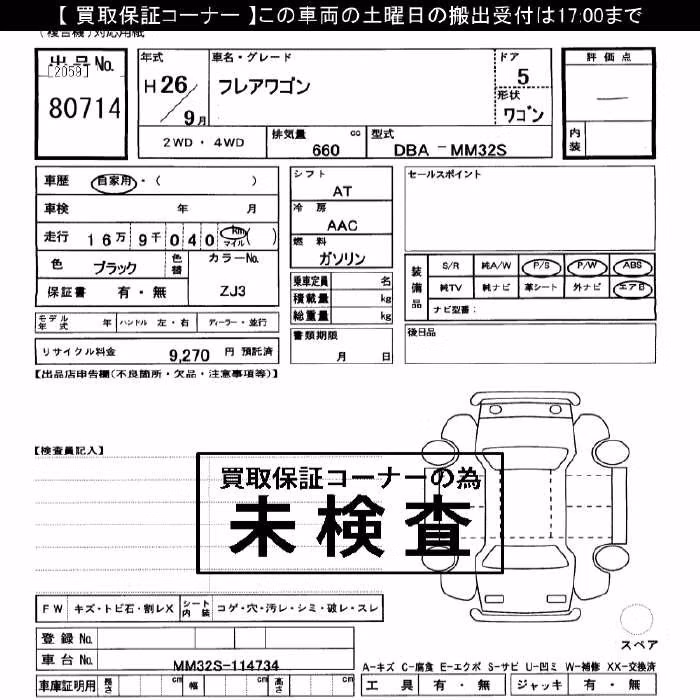 【 買取保証コーナー 】この車両の土曜日の搬出受付は17:00まで
(複合機)対応用紙
出品No.
[2059]
80714
年式
H 26
9月
車名・グレード
フレアワゴン
ドア
5
形状
ワゴン
2WD・4WD
排気量 cc
660
型式
DBA － MM32S
評価点
―
内装
車歴 自家用・( )
車検 年 月
走行 16万 9千 040 km マイル ( )
色 ブラック 色替 カラーNo.
保証書 有・無 ZJ3
モデル年式 年 ハンドル 左・右 ディーラー・並行
リサイクル料金 9,270 円 預託済
シフト
AT
冷房
AAC
燃料
ガソリン
乗車定員 名
積載量 kg
総重量 kg
書類期限
月 日
セールスポイント
装備品
S/R 純A/W P/S P/W ABS
純TV 純ナビ 革シート 外ナビ エアB
ナビ型番:
後日品
【出品店申告欄(不良箇所・欠品・注意事項等)】
【検査員記入】
買取保証コーナーの為
未検査
FW キズ・トビ石・割レX シート内装 コゲ・穴・汚レ・シミ・破レ・スレ
登録No.
車台No. MM32S-114734
車庫証明用 長さ cm 幅 cm 高さ cm
スペア
A-キズ C-腐食 E-エクボ S-サビ U-凹ミ W-補修 XX-交換済
工具 有・無 ジャッキ 有・無